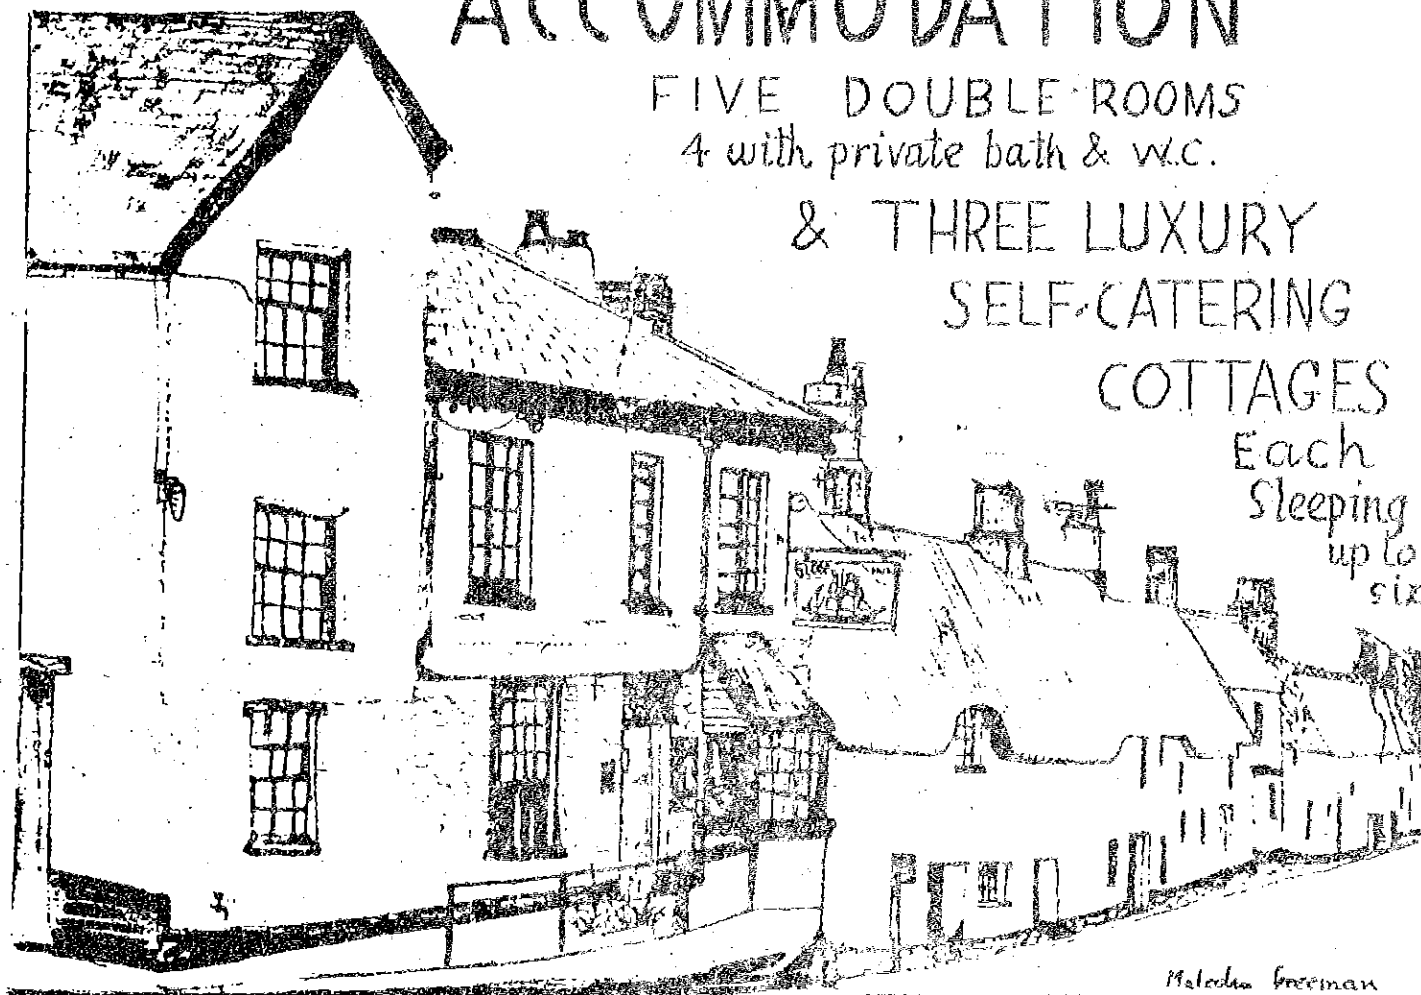 ACCOMMODATION
FIVE DOUBLE ROOMS
4 with private bath & W.C.
& THREE LUXURY
SELF-CATERING
COTTAGES
Each
Sleeping
up to
six
INN
Malcolm Freeman